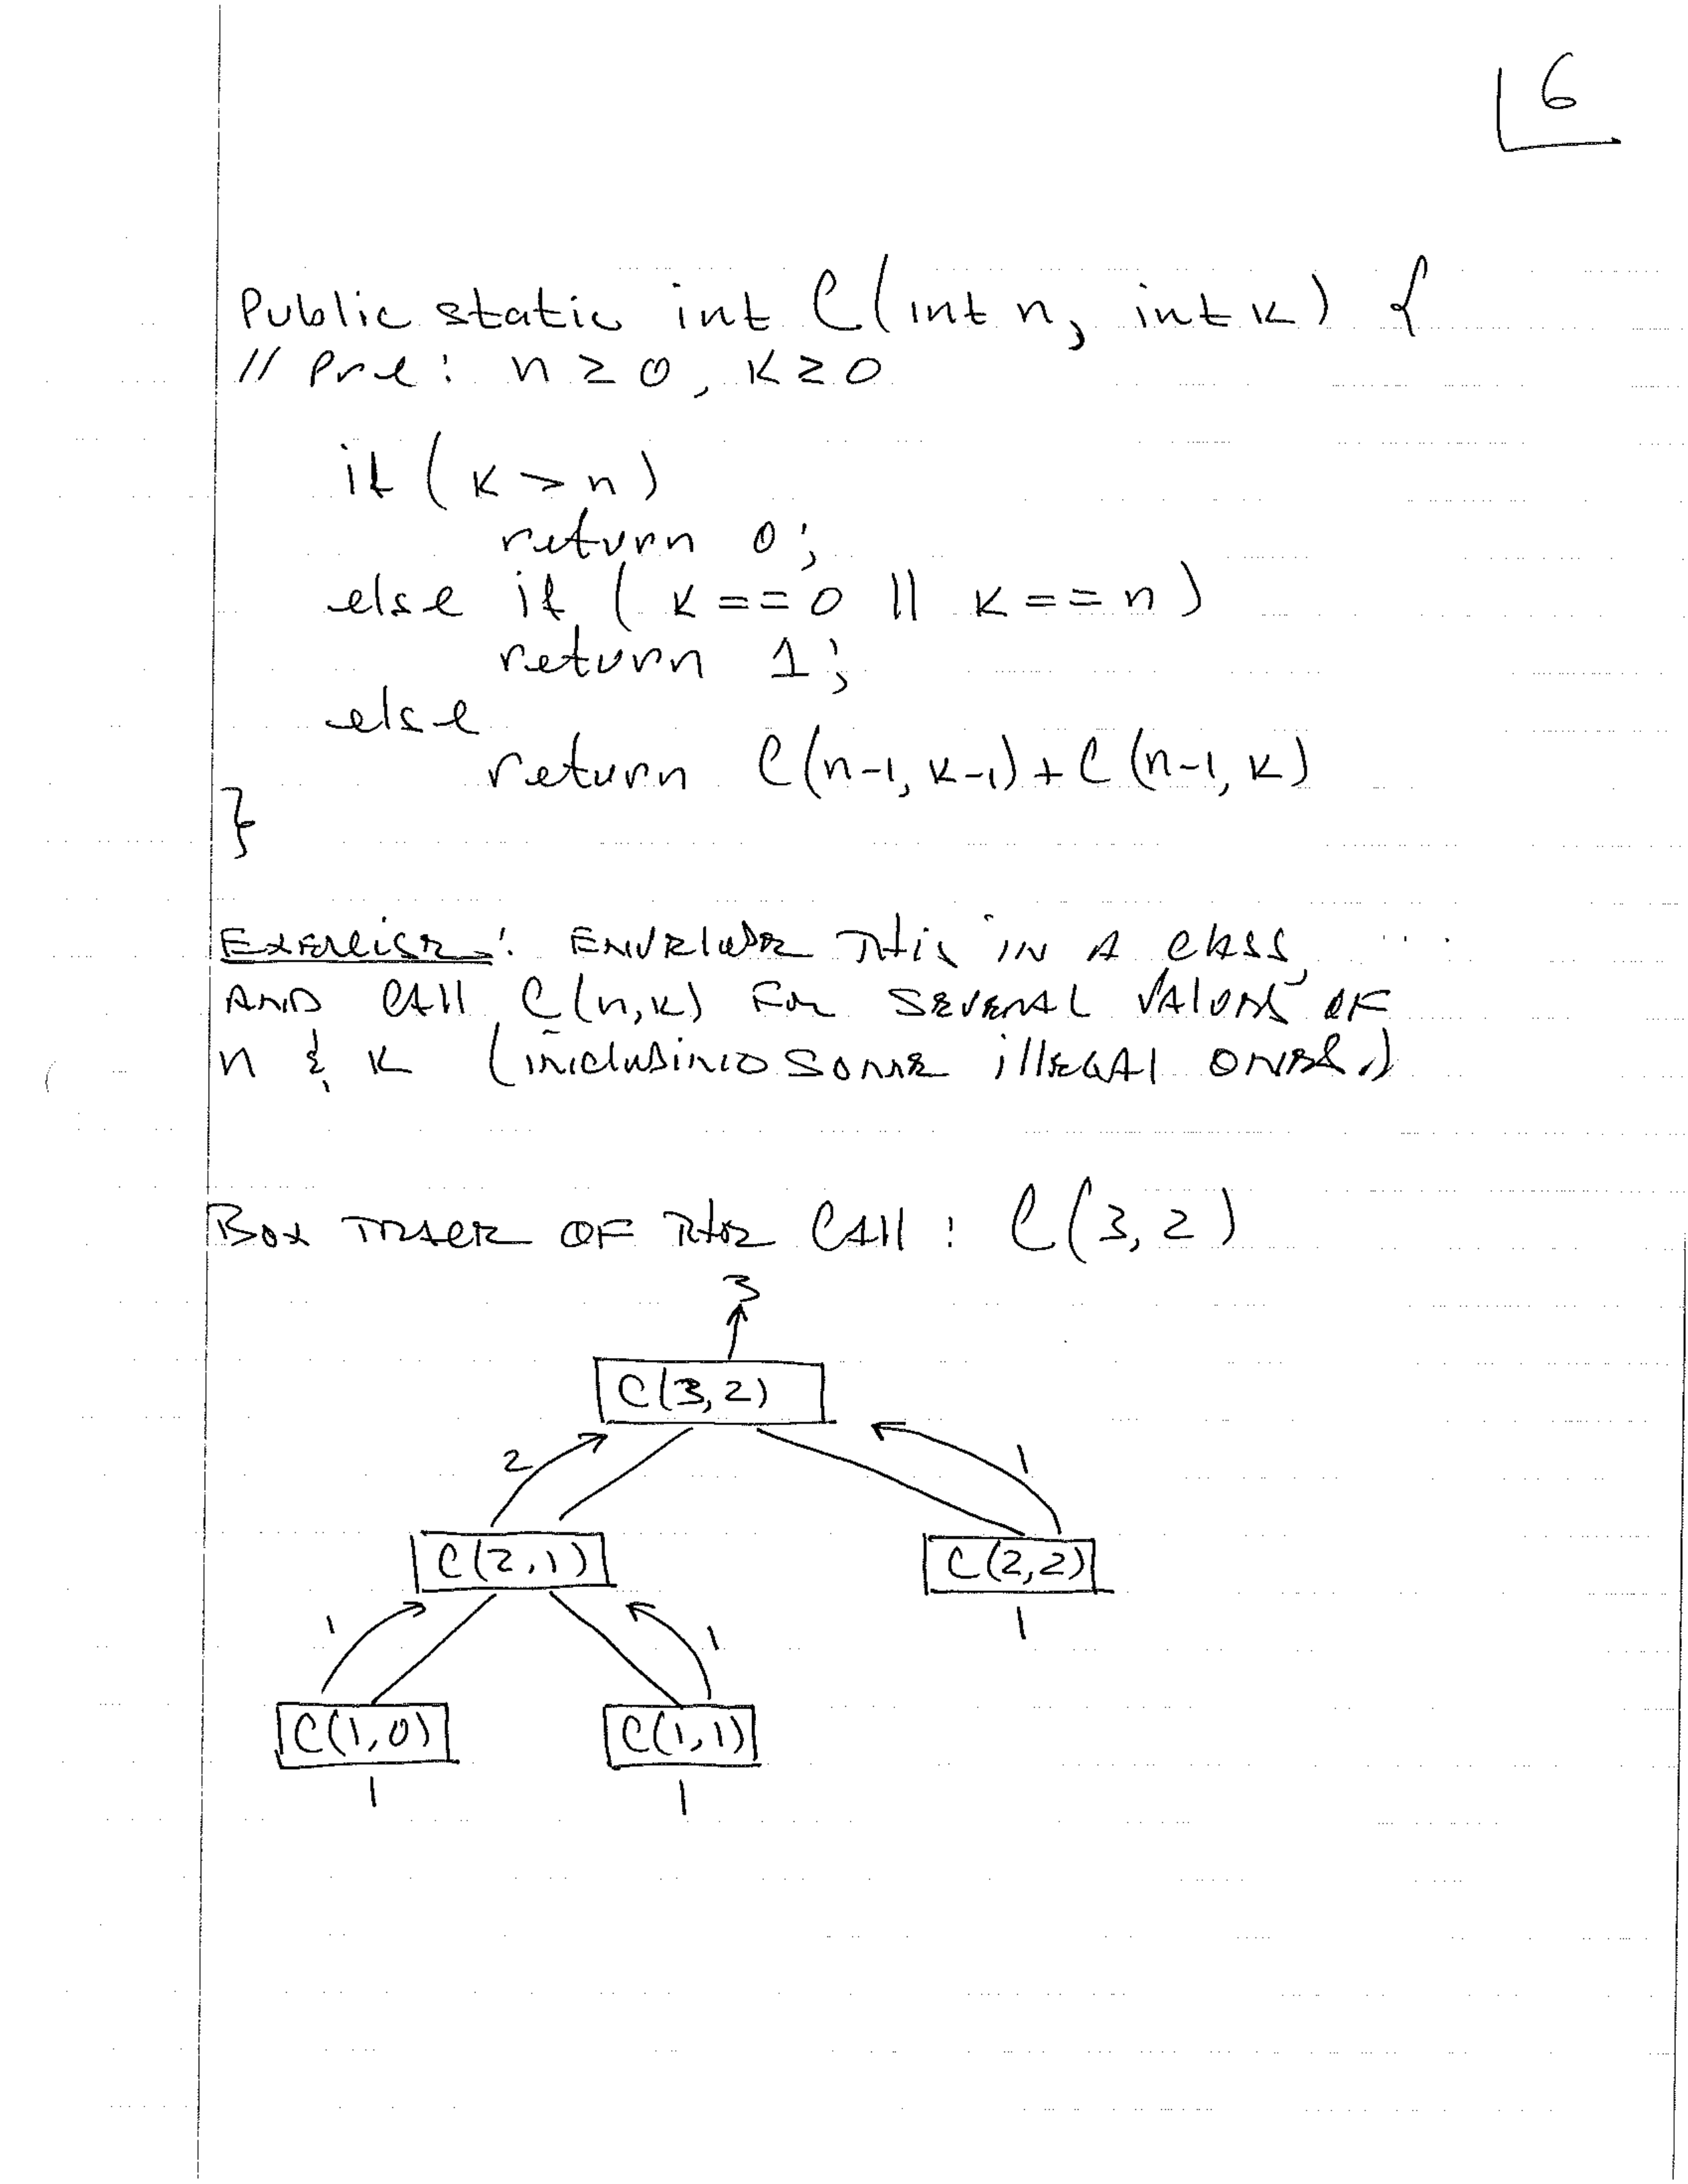 6
Public static int C(int n, int k) {
// Pre: n ≥ 0, k ≥ 0
if (k > n)
return 0;
else if (k == 0 || k == n)
return 1;
else
return C(n-1, k-1) + C(n-1, k)
}
Exercise: Envelope this in a class,
and call C(n,k) for several values of
n & k (including some illegal ones.)
Box trace of the call: C(3,2)
3
C(3,2)
2 1
C(2,1) C(2,2)
1 1 1
C(1,0) C(1,1)
1 1